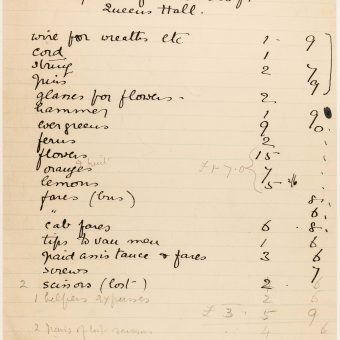 Queens Hall.
wire for wreaths etc 1 - 9
cord 1
string 2 7
pins 9
glasses for flowers - 2
hammer 1 9
evergreens 9 0
ferns 2
flowers 15
oranges & fruit 7 £1-7-0
lemons 5 2/6
fares (bus) 8
" 6
cab fares 6 8
tips to van men 1 6
paid assistance & fares 3 6
screws 7
2 scissors (lost) 2 6
1 helpers expenses 2 6
£3 - 5 9
2 pairs of lost scissors 4 6